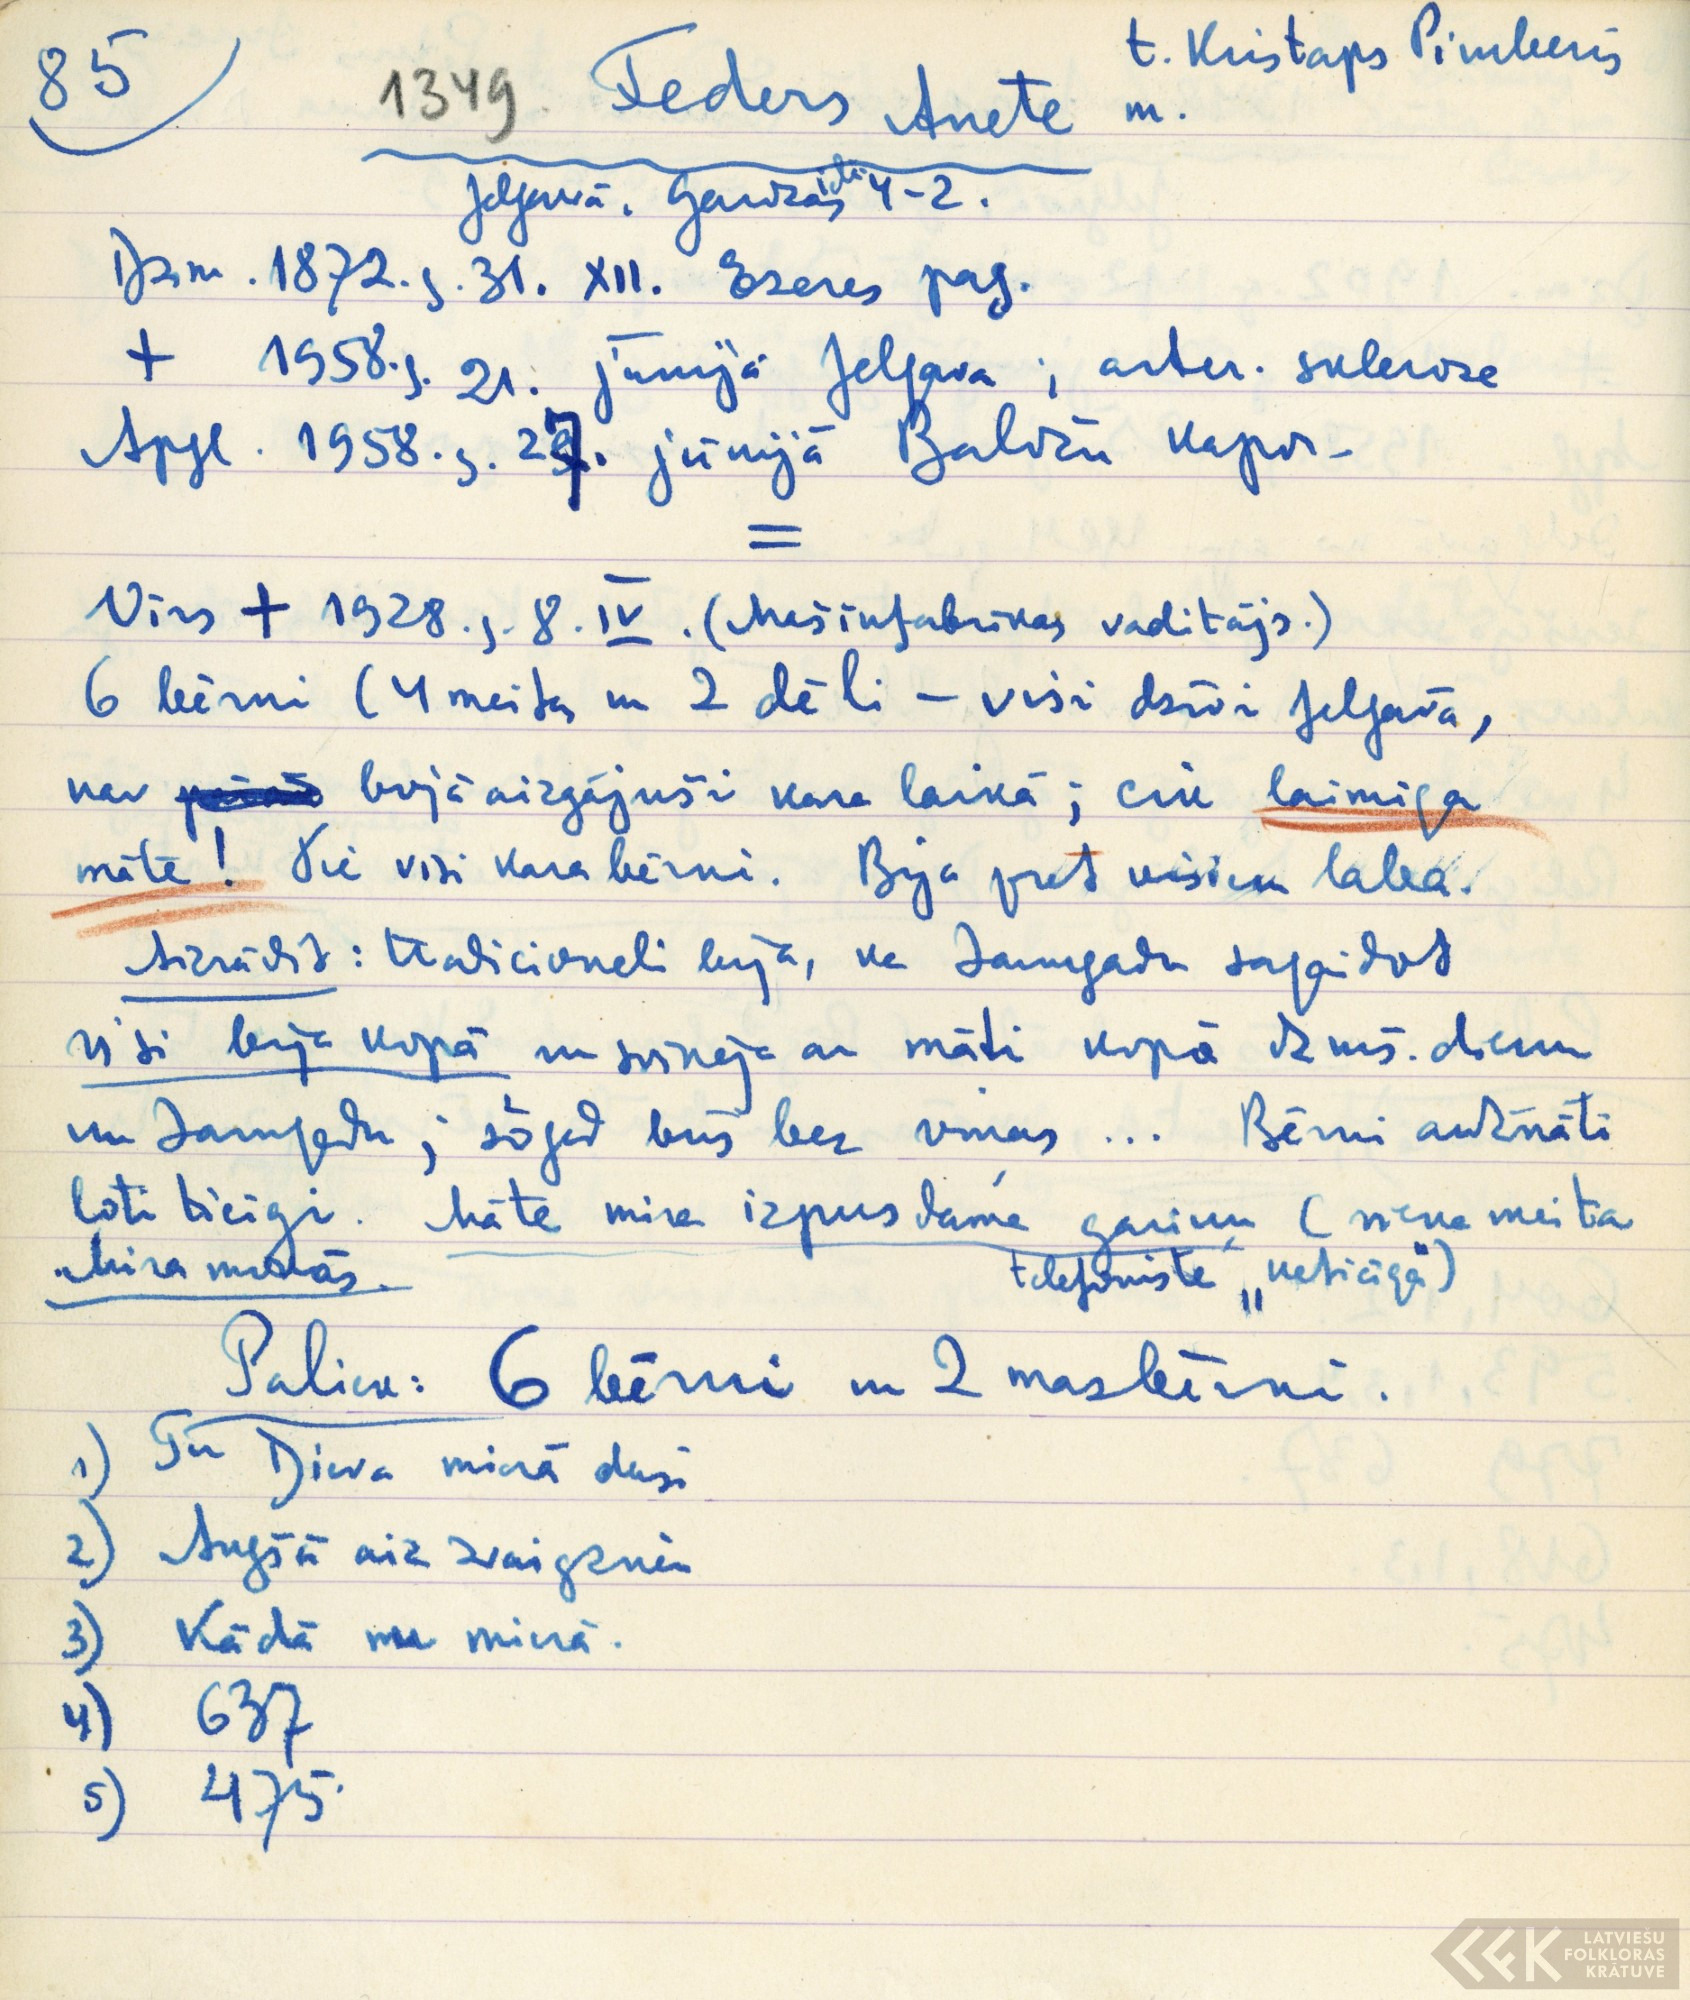 85
t. Kristaps Pimberis
1349. Feders Anete m.
Jelgavā. Garozas ielā 4-2.
Dzim. 1872. g. 31. XII. Ezeres pag.
+ 1958. g. 21. jūnijā Jelgava; arter. skleroze
Apgl. 1958. g. 27. jūnijā Baložu kapos
=
Vīrs + 1928. g. 8. IV. (Mašinfabrikas vaditājs.)
6 bērni (4 meitas un 2 dēli - visi dzīvi Jelgavā,
nav bojā aizgājuši kara laikā; cik laimiga
māte! Tie visi kara bērni. Bija pret visiem laba.
Aizrādīt: tradicioneli bija, ka Jaungadu sagaidot
visi bija kopā un svinēja ar māti kopā dzmš. dienu
un Jaungadu; šōgad būs bez viņas ... Bērni audzināti
loti ticigi. Māte mira izpusdama gariņu (viena meita
Mira mātās. telefoniste „neticiga")
Paliek: 6 bērni un 2 mazbērni.
1) Tu Dieva mierā dusi
2) Augšā aiz zvaigznēm
3) Kādā nu mierā.
4) 637
5) 475
LATVIEŠU
FOLKLORAS
KRĀTUVE